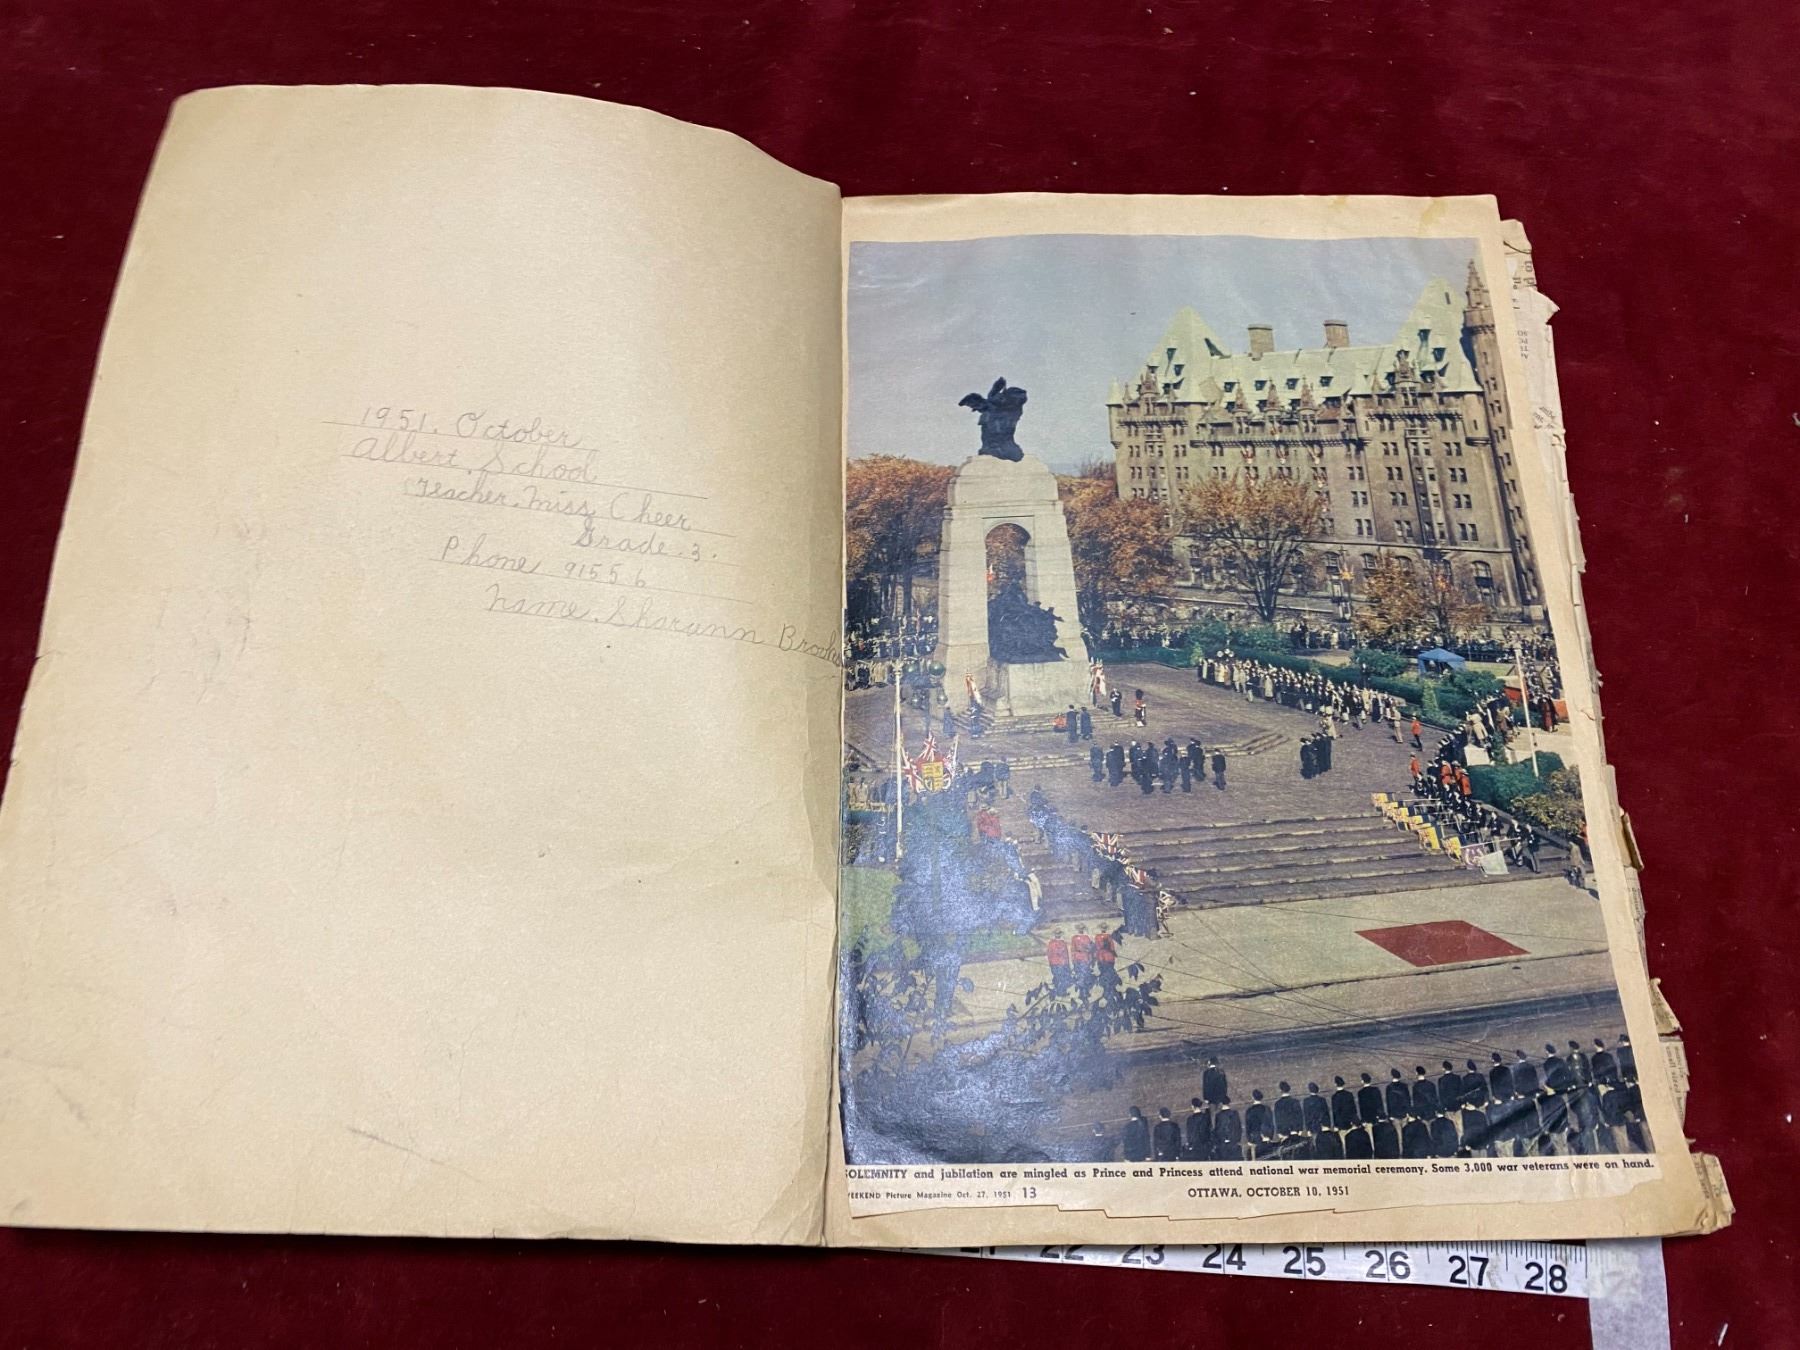 1951. October
Albert. School
Teacher. Miss Cheer
Grade. 3.
Phone 91556
Name. Sharunn Brooks
SOLEMNITY and jubilation are mingled as Prince and Princess attend national war memorial ceremony. Some 3,000 war veterans were on hand.
WEEKEND Picture Magazine Oct. 27, 1951 13 OTTAWA, OCTOBER 10, 1951
22 23 24 25 26 27 28